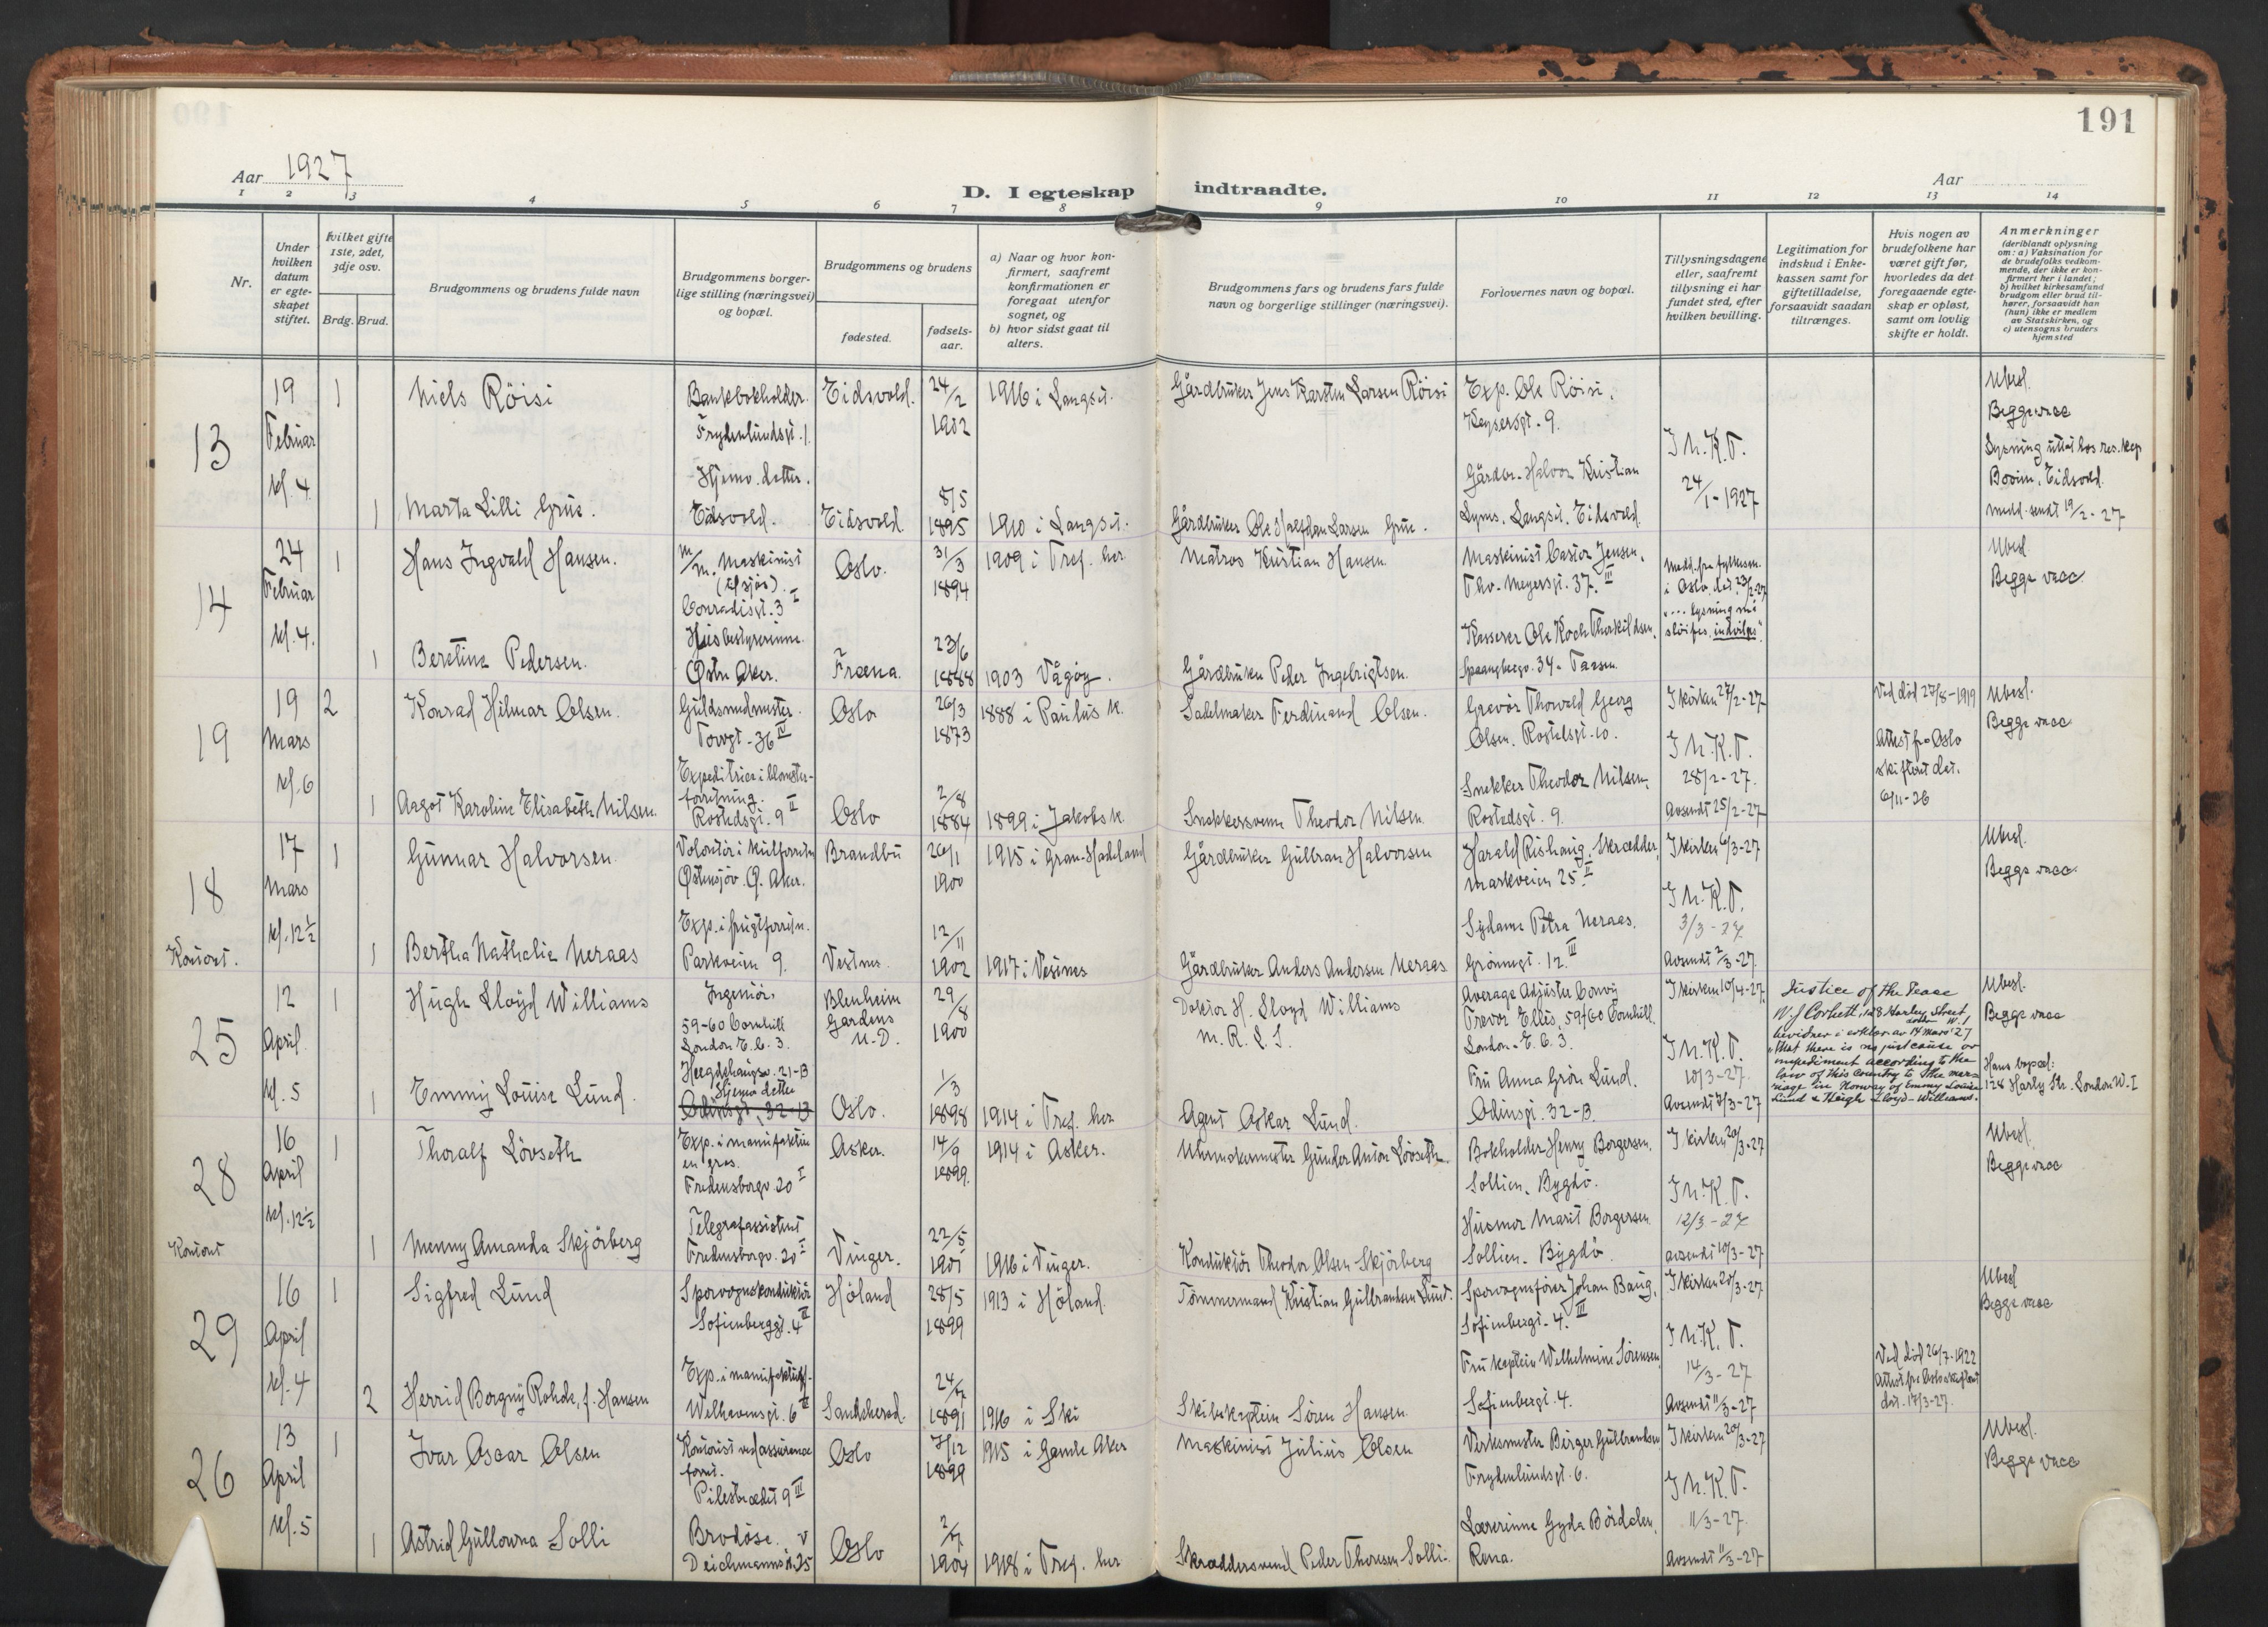 191
Aar 1927
D. I egteskap indtraadte.
Aar
1 2 3 4 5 6 7 8 9 10 11 12 13 14
Nr.
Under hvilken datum er egteskapet stiftet.
Hvilket gifte 1ste, 2det, 3dje osv.
Brdg. Brud.
Brudgommens og brudens fulde navn
Brudgommens borgerlige stilling (næringsvei) og bopæl.
Brudgommens og brudens
fødested.
fødselsaar.
a) Naar og hvor konfirmert, saafremt konfirmationen er foregaat utenfor sognet, og
b) hvor sidst gaat til alters.
Brudgommens fars og brudens fars fulde navn og borgerlige stillinger (næringsvei).
Forlovernes navn og bopæl.
Tillysningsdagene eller, saafremt tillysning ei har fundet sted, efter hvilken bevilling.
Legitimation for indskud i Enkekassen samt for giftetilladelse, forsaavidt saadan tiltrænges.
Hvis nogen av brudefolkene har været gift før, hvorledes da det foregaaende egteskap er opløst, samt om lovlig skifte er holdt.
Anmerkninger (deriblandt oplysning om: a) Vaksination for de brudefolks vedkommende, der ikke er konfirmert her i landet; b) hvilket kirkesamfund brudgom eller brud tilhører, forsaavidt han (hun) ikke er medlem av Statskirken, og c) utensogns bruders hjemsted
13
19 Februar kl. 4
1 Niels Röisi
Bankbokholder. Frydenlundsgt. 1.
Eidsvold. 24/2 1902
1916 i Langset.
Gårdbruker Jens Karsten Larsen Röisi
Exp. Ole Röisi, Keysersgt. 9.
1 Marta Lilli Grue.
Hjemv. datter. Eidsvold.
Eidsvold 8/5 1895
1910 i Langset.
Gårdbruker Ole Halfdan Larsen Grue.
Gårdbr. Halvor Kristian Lyms. Langset. Eidsvold
I N.K.T. 24/1-1927
Ubesl. Begge vacc
Lysning uttat hos res. kap Eidsvold. medd. sendt 19/2-27
14
24 Februar kl. 4.
1 Hans Ingvald Hansen.
m/m. Maskinist (tilsjös). Conradisgt. 3 I
Oslo. 31/3 1894
1909 i Tref. her
Matros Kristian Hansen.
Maskinist Castor Jensen, Thv. Meyersgt. 37. III
1 Beretine Pedersen.
Husbestyrerinne. Östre Aker.
Fræna. 23/6 1888
1903 Vågöy.
Gårdbruker Peder Ingebrigtsen.
Kasserer Ole Koch Thorkildsen, Spaangbergv. 34. Taasen.
Medd. fra fylkesm. i Oslo, dat. 23/2-27 "... lysning må slöifes, indvilges".
Ubesl. Begge vacc.
19
19 Mars kl. 6
2 Konrad Hilmar Olsen.
Guldsmedmester. Torvgt. 36 IV
Oslo 26/3 1873
1888 i Paulus k.
Sadelmaker Ferdinand Olsen.
Gravör Thorvald Georg Olsen. Rostedsgt. 10.
1 Aagot Karoline Elisabeth Nilsen.
Expeditrice i blomsterforretning. Rostedsgt. 9 II
Oslo 2/8 1884
1899 i Jakobs k.
Snekkersvenn Theodor Nilsen.
Snekker Theodor Nilsen, Rostedsgt. 9.
I kirken 27/2-27
I N.K.T. 28/2-27.
Avsendt 25/2-27
Ved död 27/8-1919
Attest fra Oslo skifterett dat. 6/11-26
Ubesl. Begge vacc
18
Kontoret.
17 Mars kl. 12½
1 Gunnar Halvorsen
Volontör i kulforretn Östensjöv. Ö. Aker.
Brandbu 26/1 1900
1915 i Gran-Hadeland
Gårdbruker Gulbran Halvorsen
Harald Rishaug, Skrædder, Markveien 25. II
1 Bertha Nathalie Neraas
Exp. i frugtforretn. Parkveien 9.
Vestnes. 12/11 1902
1917 i Vestnes
Gårdbruker Anders Andersen Neraas
Sydame Petra Neraas. Grönnegt. 12. III
I kirken 6/3-27
I N.K.T. 3/3-27
Avsendt 2/3-27
Ubesl. Begge vacc.
25
12 April. kl. 5
1 Hugh Lloyd Williams
Ingeniör. 59-60 Cornhill London E. C. 3.
Blenheim Gardens N.D. 29/8 1900
Doktor H. Lloyd Williams M.R.L.S.
Average Adjuster Convy Trevor Ellis, 59/60 Cornhill. London. E. C. 3.
1 Emmy Louise Lund.
Heegdehaugsv. 21-B Hjemv datter Odinsgt. 32-B
Oslo. 1/3 1898
1914 i Tref. her
Agent Oskar Lund.
Fru Anna Grön Lund. Odinsgt. 32-B.
I kirken 10/4-27.
I N.K.T. 10/3-27.
Avsendt 7/3-27
Justice of the Peace W. J. Corbett, 128 Harley Street, London W. 1 bevidner i erklær. av 14 mars '27 "that there is no just cause or impediment according to the law of this country to the marriage in Norway of Emmy Louise Lund & Hugh Lloyd-Williams."
Ubesl. Begge vacc
Hans bopæl: 128 Harly Str. London W. I
28
Kontoret
16 April kl. 12½
1 Thoralf Lövseth
Exp. i manufaktur en gros. Fredensborgv. 20 I
Asker. 14/9 1899.
1914 i Asker.
Urmakermester Gunder Anton Lövseth.
Bokholder Henry Borgersen. Sollien. Bygdö.
1 Menny Amanda Skjörberg
Telegrafassistent Fredensborgv. 20 I
Vinger. 22/5 1901
1916 i Vinger.
Konduktör Theodor Olsen Skjörberg
Husmor Marit Borgersen. Sollien. Bygdö.
I kirken 20/3-27
I N.K.T. 12/3-27
avsendt 10/3-27
Ubesl. Begge vacc
29
16 April kl. 4
1 Sigfred Lund
Sporvognskonduktör Sofienberggt. 4 III
Höland 28/5 1899
1913 i Höland.
Tömmermand Kristian Gulbrandsen Lund.
Sporvognsförer Johan Baug, Sofienbergt. 4. III
2 Herrid Borgny Rohde, f. Hansen
Exp. i manufakturf. Welhavensgt. 6 II
Sandeherred. 24/7 1891
1916 i Ski
Skibskaptein Sören Hansen.
Fru kaptein Wilhelmine Sörensen, Sofienbergt. 4.
I kirken 20/3-27
I N.K.T. 14/3-27
Avsendt 11/3-27
Ved död 26/7-1922 Attest fra Oslo skifterett dat. 17/3-27.
Ubesl Begge vacc
26
13 April kl. 5
1 Ivar Oscar Olsen
Kontorist ved assurance forret. Pilestrædet 9 III
Oslo 7/12 1899
1915 i Gamle Aker
Maskinist Julius Olsen
Verksmester Birger Gulbrandsen Frydenlundsgt. 6.
1 Astrid Gullowna Solli
Brodöse. v Deichmannsgt. 25
Oslo 2/7 1904
1918 i Tref. her
Skræddersvend Peder Thoresen Solli.
Lærerinne Gyda Bördalen, Rena.
I kirken 20/3-27
I N.K.T. 11/3-27.
Avsendt 11/3-27
Ubesl. Begge vacc